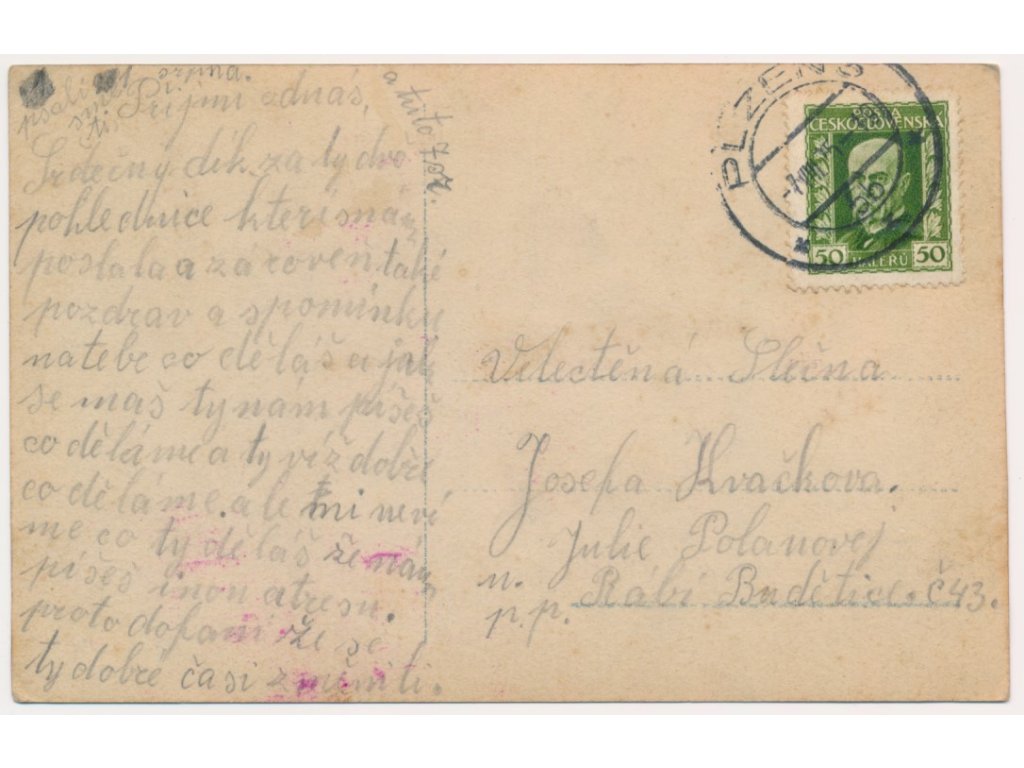 srpna.
Přijmi odnás,
Srdečný dík za ty dvě
pohlednice kterisnám
poslala a zároveň také
pozdrav a spomínku
natebe co děláš a jak
se máš ty nám píšeš
co děláme a ty víž dobře
co děláme. ale mi neví
me co ty děláš že nám
píšeš inou atresu.
proto dofami že se
ty dobré časi změniti.
a tuto
PLZEŇ 5
5b
ČESKOSLOVENSKÁ
50 HALÉŘŮ 50
Velectěná Slečna
Josefa Kvačkova.
Julie Polanovej
u.
p.p. Rábí Budětice. č43.